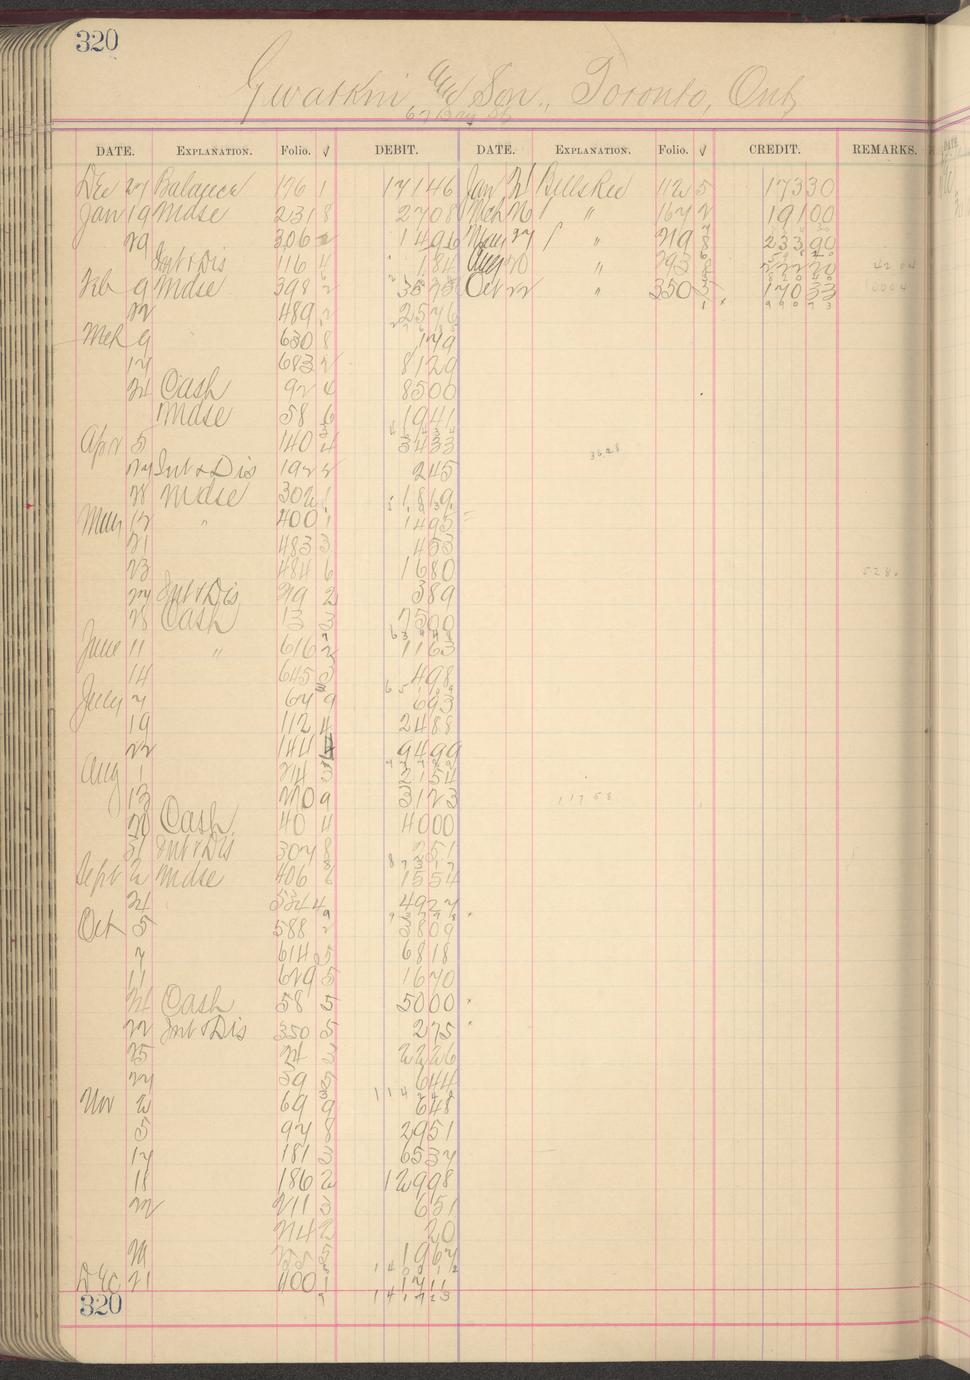 320
Gwatkin and Son., Toronto, Ont
67 Bay St
DATE. EXPLANATION. Folio. √ DEBIT. DATE. EXPLANATION. Folio. √ CREDIT. REMARKS.
Dec 27 Balance 176 1 17146 Jan 21 Bills Rec 112 5 17330
Jan 19 Mdse 231 8 2708 Mch 26 " 167 2 19100
29 306 2 1496 May 27 " 219 8 23390
Int & Dis 116 4 184 Aug 20 " 293 22220
Feb 9 Mdse 398 2 Oct 22 " 350 17033
22 489 2 2576
Mch 9 630 8 179
17 683 2 8129
24 Cash 92 4 8500
Mdse 58 6 1941
Apr 5 140 4 3433
27 Int & Dis 192 2 245
28 Mdse 302 1 1819
May 12 " 400 1 1495
21 483 3 453
23 484 6 1680
27 Int & Dis 219 2 389
28 Cash 13 3 7500
June 11 " 616 2 1163
14 645 3 498
July 7 67 9 693
19 112 4 2488
22 144 9499
Aug 1 214 3 2154
13 270 9 3123
20 Cash 40 4 4000
31 Int & Dis 307 8 751
Sept 2 Mdse 406 8 1554
24 534 4 4927
Oct 5 588 2 3809
7 614 5 6818
11 629 5 1670
24 Cash 58 5 5000
22 Int & Dis 350 5 275
25 24 3 2226
27 59 5 644
11424
Nov 2 69 9 648
5 97 8 2951
17 181 3 6537
18 186 2 12998
22 211 3 651
242 20
5 1967
Dec 21 400 1 1711
320 141723